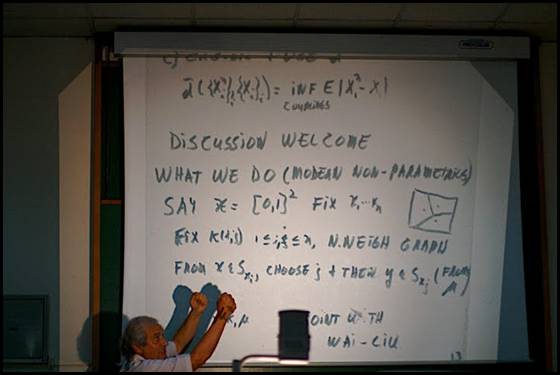 d̄({X²ᵢ}ᵢ, {Xᵢ}ᵢ) = INF E|X²ᵢ - Xᵢ|
COUPLINGS
DISCUSSION WELCOME
WHAT WE DO (MODERN NON-PARAMETRICS)
SAY 𝒳 = [0,1]² FIX X₁...Xₙ
FIX K(i,j) 1 ≤ i,j ≤ n, N.NEIGH GRAPH
FROM X ∈ Sₓᵢ, CHOOSE j + THEN y ∈ Sₓⱼ (FROM μ
K, μ JOINT WITH
WAI-LIU
13